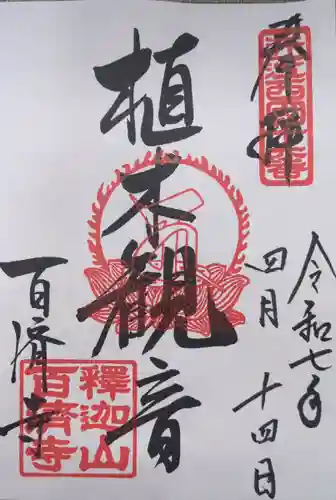 奉拝
令和七年
四月
十四日
植木観音
百済寺
釋迦山
百済寺